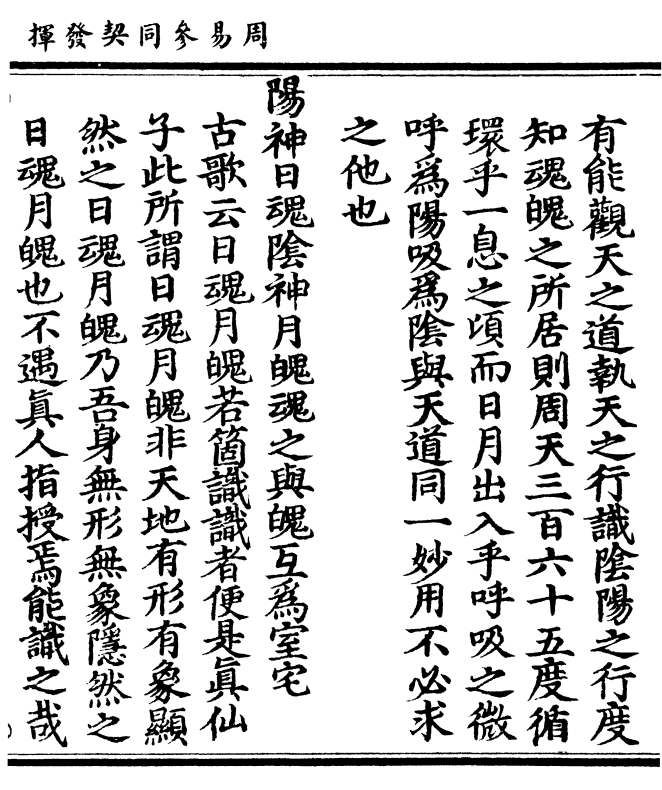 周易參同契發揮
有能觀天之道執天之行識陰陽之行度
知魂魄之所居則周天三百六十五度循
環乎一息之頃而日月出入乎呼吸之微
呼爲陽吸爲陰與天道同一妙用不必求
之他也
陽神日魂陰神月魄魂之與魄互爲室宅
古歌云日魂月魄若箇識識者便是眞仙
子此所謂日魂月魄非天地有形有象顯
然之日魂月魄乃吾身無形無象隱然之
日魂月魄也不遇眞人指授焉能識之哉